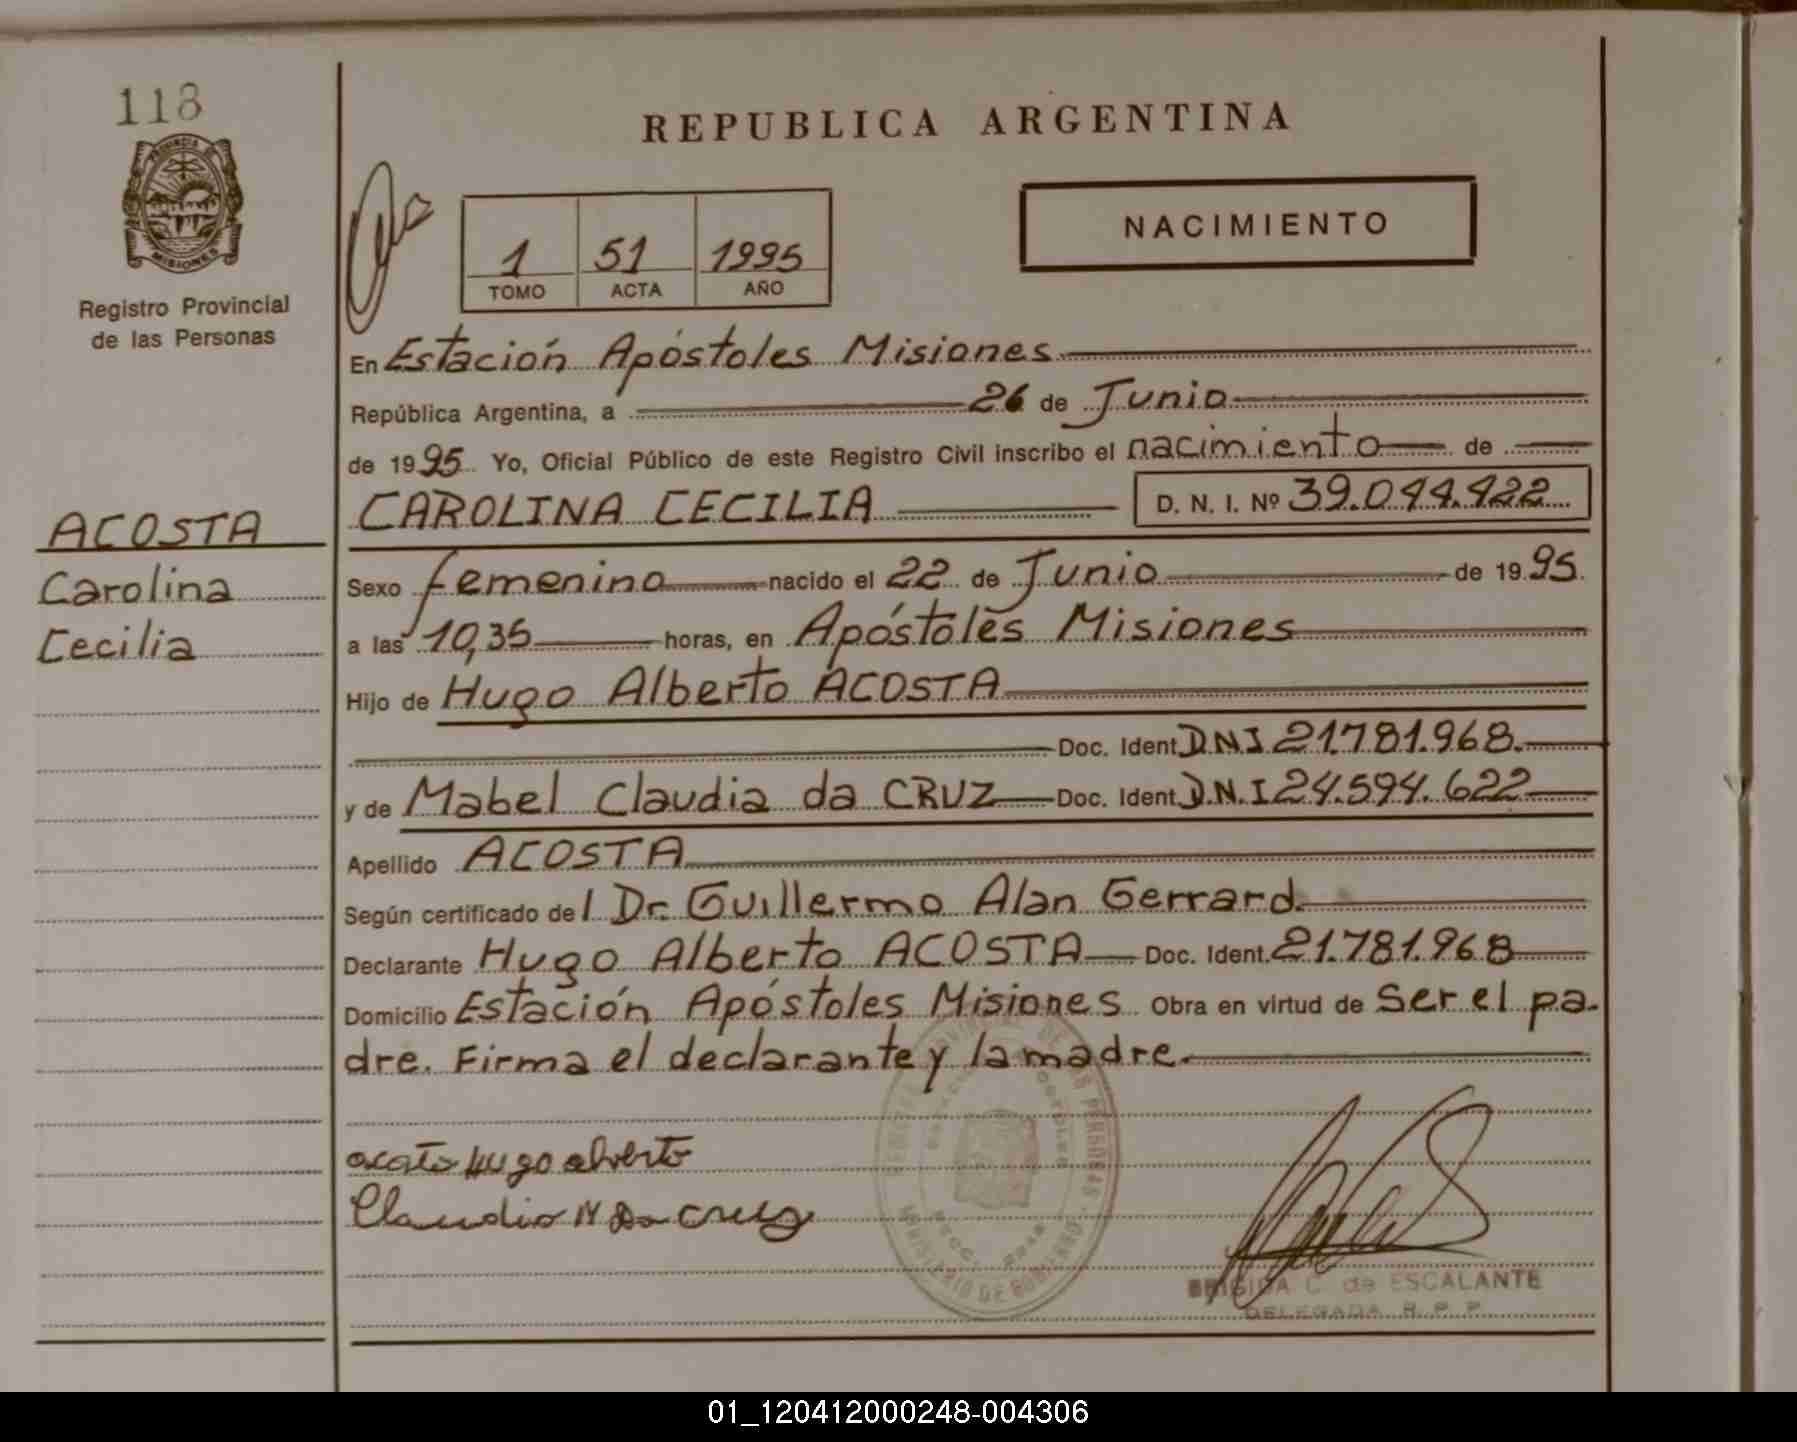 118
PROVINCIA DE
MISIONES
Registro Provincial
de las Personas
ACOSTA
Carolina
Cecilia
REPUBLICA ARGENTINA
1 51 1995
TOMO ACTA AÑO
NACIMIENTO
En Estación Apóstoles Misiones
República Argentina, a 26 de Junio
de 1995 Yo, Oficial Público de este Registro Civil inscribo el nacimiento de
CAROLINA CECILIA D. N. I. Nº 39.044.422
Sexo femenino nacido el 22 de Junio de 1995.
a las 10,35 horas, en Apóstoles Misiones
Hijo de Hugo Alberto ACOSTA
Doc. Ident. D.N.I 21.781.968.
y de Mabel Claudia da CRUZ Doc. Ident. D.N.I 24.594.622
Apellido ACOSTA
Según certificado del Dr. Guillermo Alan Gerrard.
Declarante Hugo Alberto ACOSTA Doc. Ident. 21.781.968
Domicilio Estación Apóstoles Misiones Obra en virtud de Ser el pa-
dre. Firma el declarante y la madre.
acosta Hugo alberto
Claudia M Da cruz
DE LAS PERSONAS
MINISTERIO DE GOBIERNO
BRIGIDA C. de ESCALANTE
DELEGADA R. P. P.
01_120412000248-004306